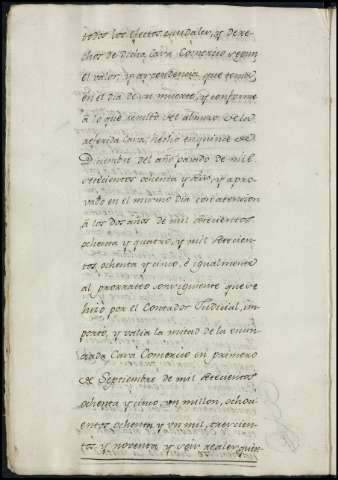 todos los efectos, caudales, y dere-
chos de Dicha Casa Comercio segun
el valor, y dependencia que tenia
en el dia de su muerte, y conforme
à lo que resultó del abono de la
referida Casa, hecho en quince de
Diciembre del año pasado de mil
setecientos ochenta y seis, y apro-
vado en el mismo dia con atencion
à los dos años de mil setecientos
ochenta y quatro, y mil setecien-
tos ochenta y cinco, è igualmente
al prorrateo consiguiente que se
hizo por el Contador Judicial, im-
portó, y valia la mitad de la enun-
ciada Casa Comercio en primero
de Septiembre de mil setecientos
ochenta y cinco, un millon, ochoci-
entos ochenta y un mil, trescien-
tos y noventa y seis reales quin-